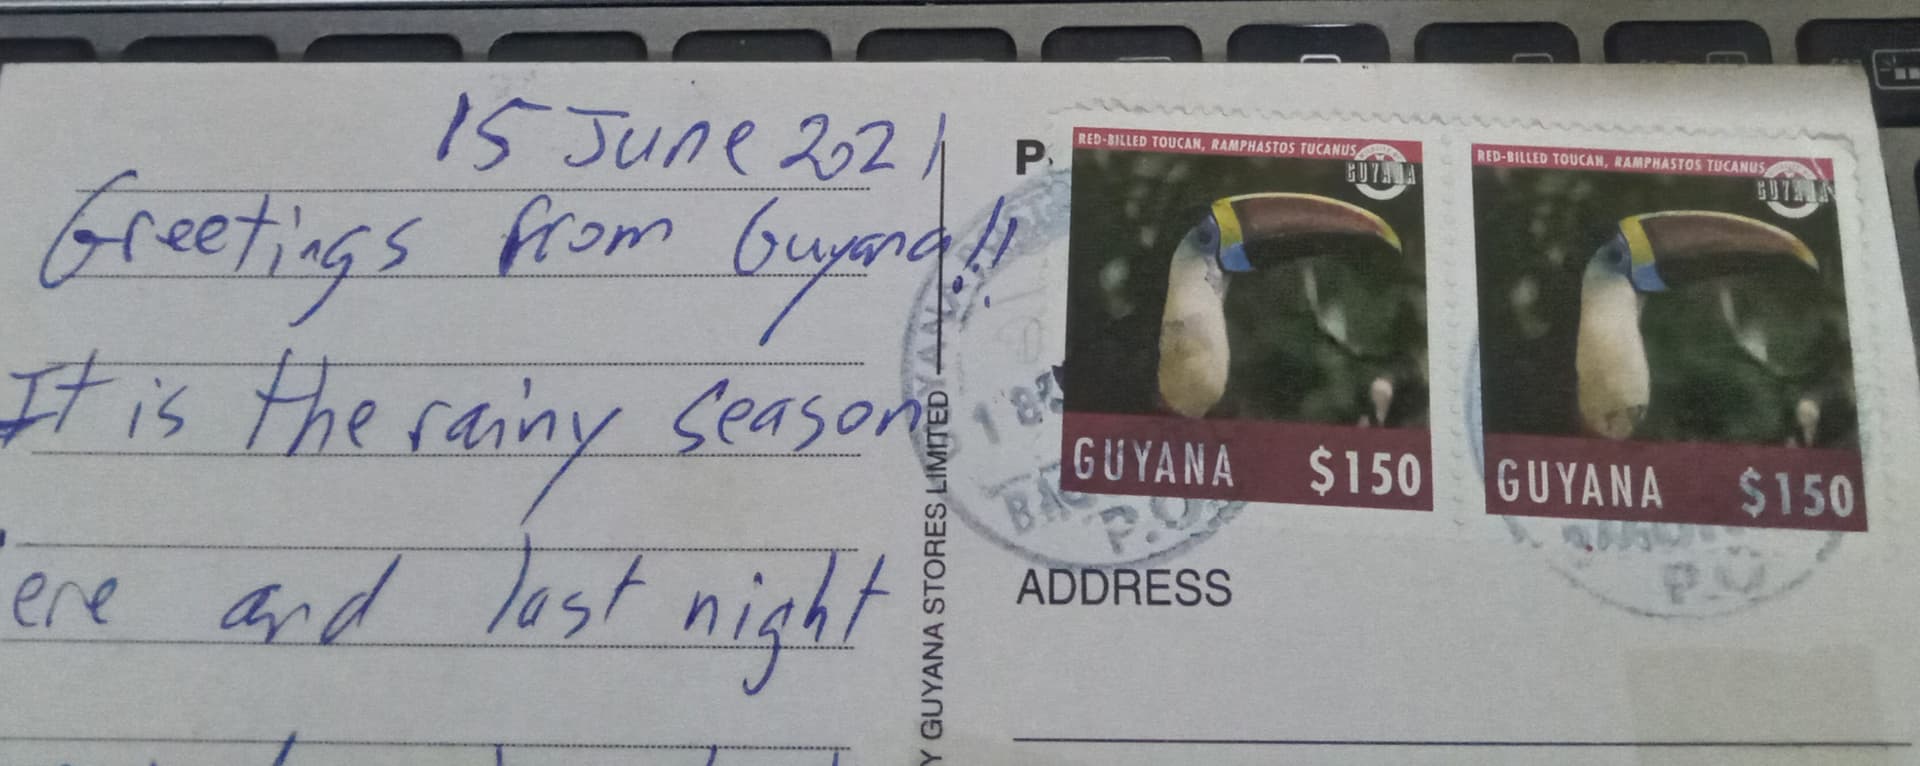 15 June 2021
Greetings from Guyana!!
It is the rainy season
ere and last night
Y GUYANA STORES LIMITED
P
RED-BILLED TOUCAN, RAMPHASTOS TUCANUS
GUYANA
GUYANA $150
RED-BILLED TOUCAN, RAMPHASTOS TUCANUS
GUYANA
GUYANA $150
P.O.
P.O
ADDRESS